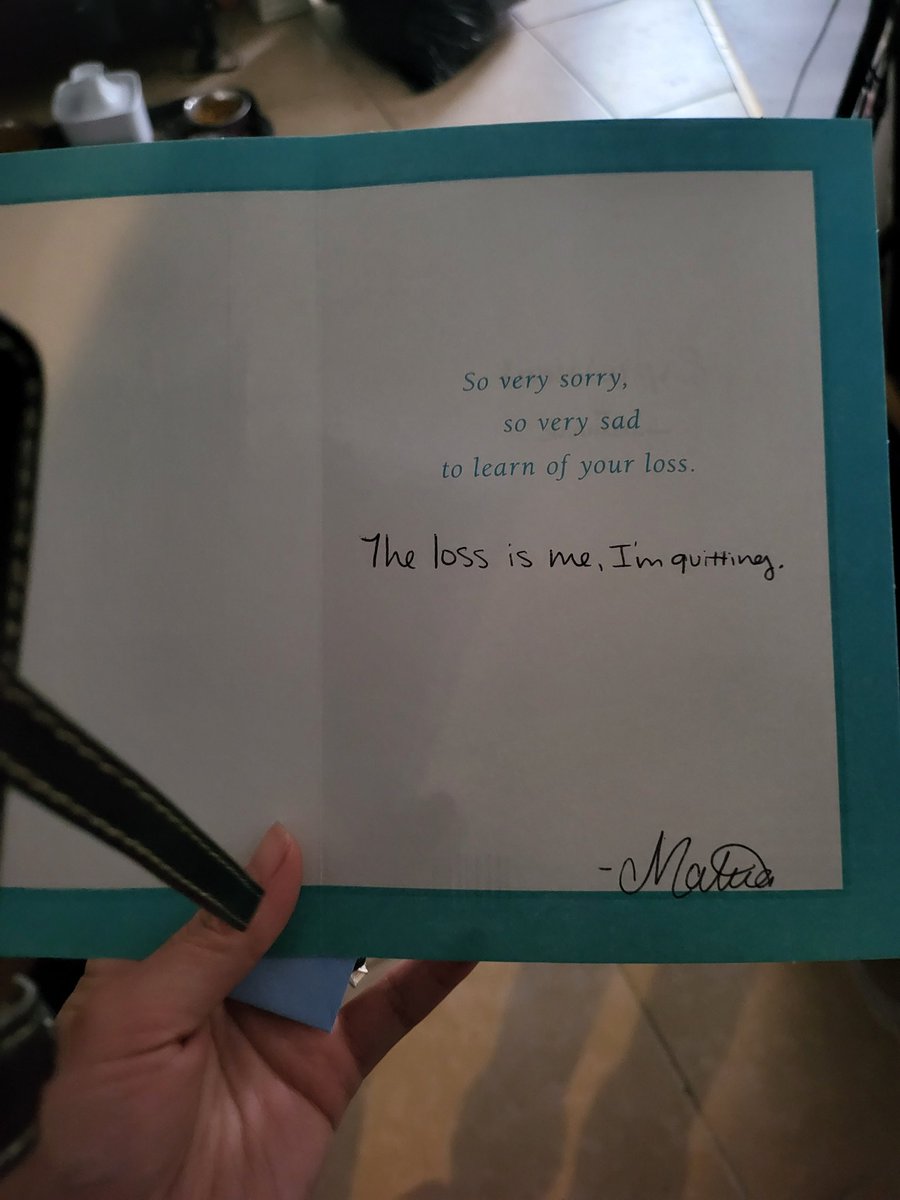 So very sorry,
so very sad
to learn of your loss.
The loss is me, I'm quitting.